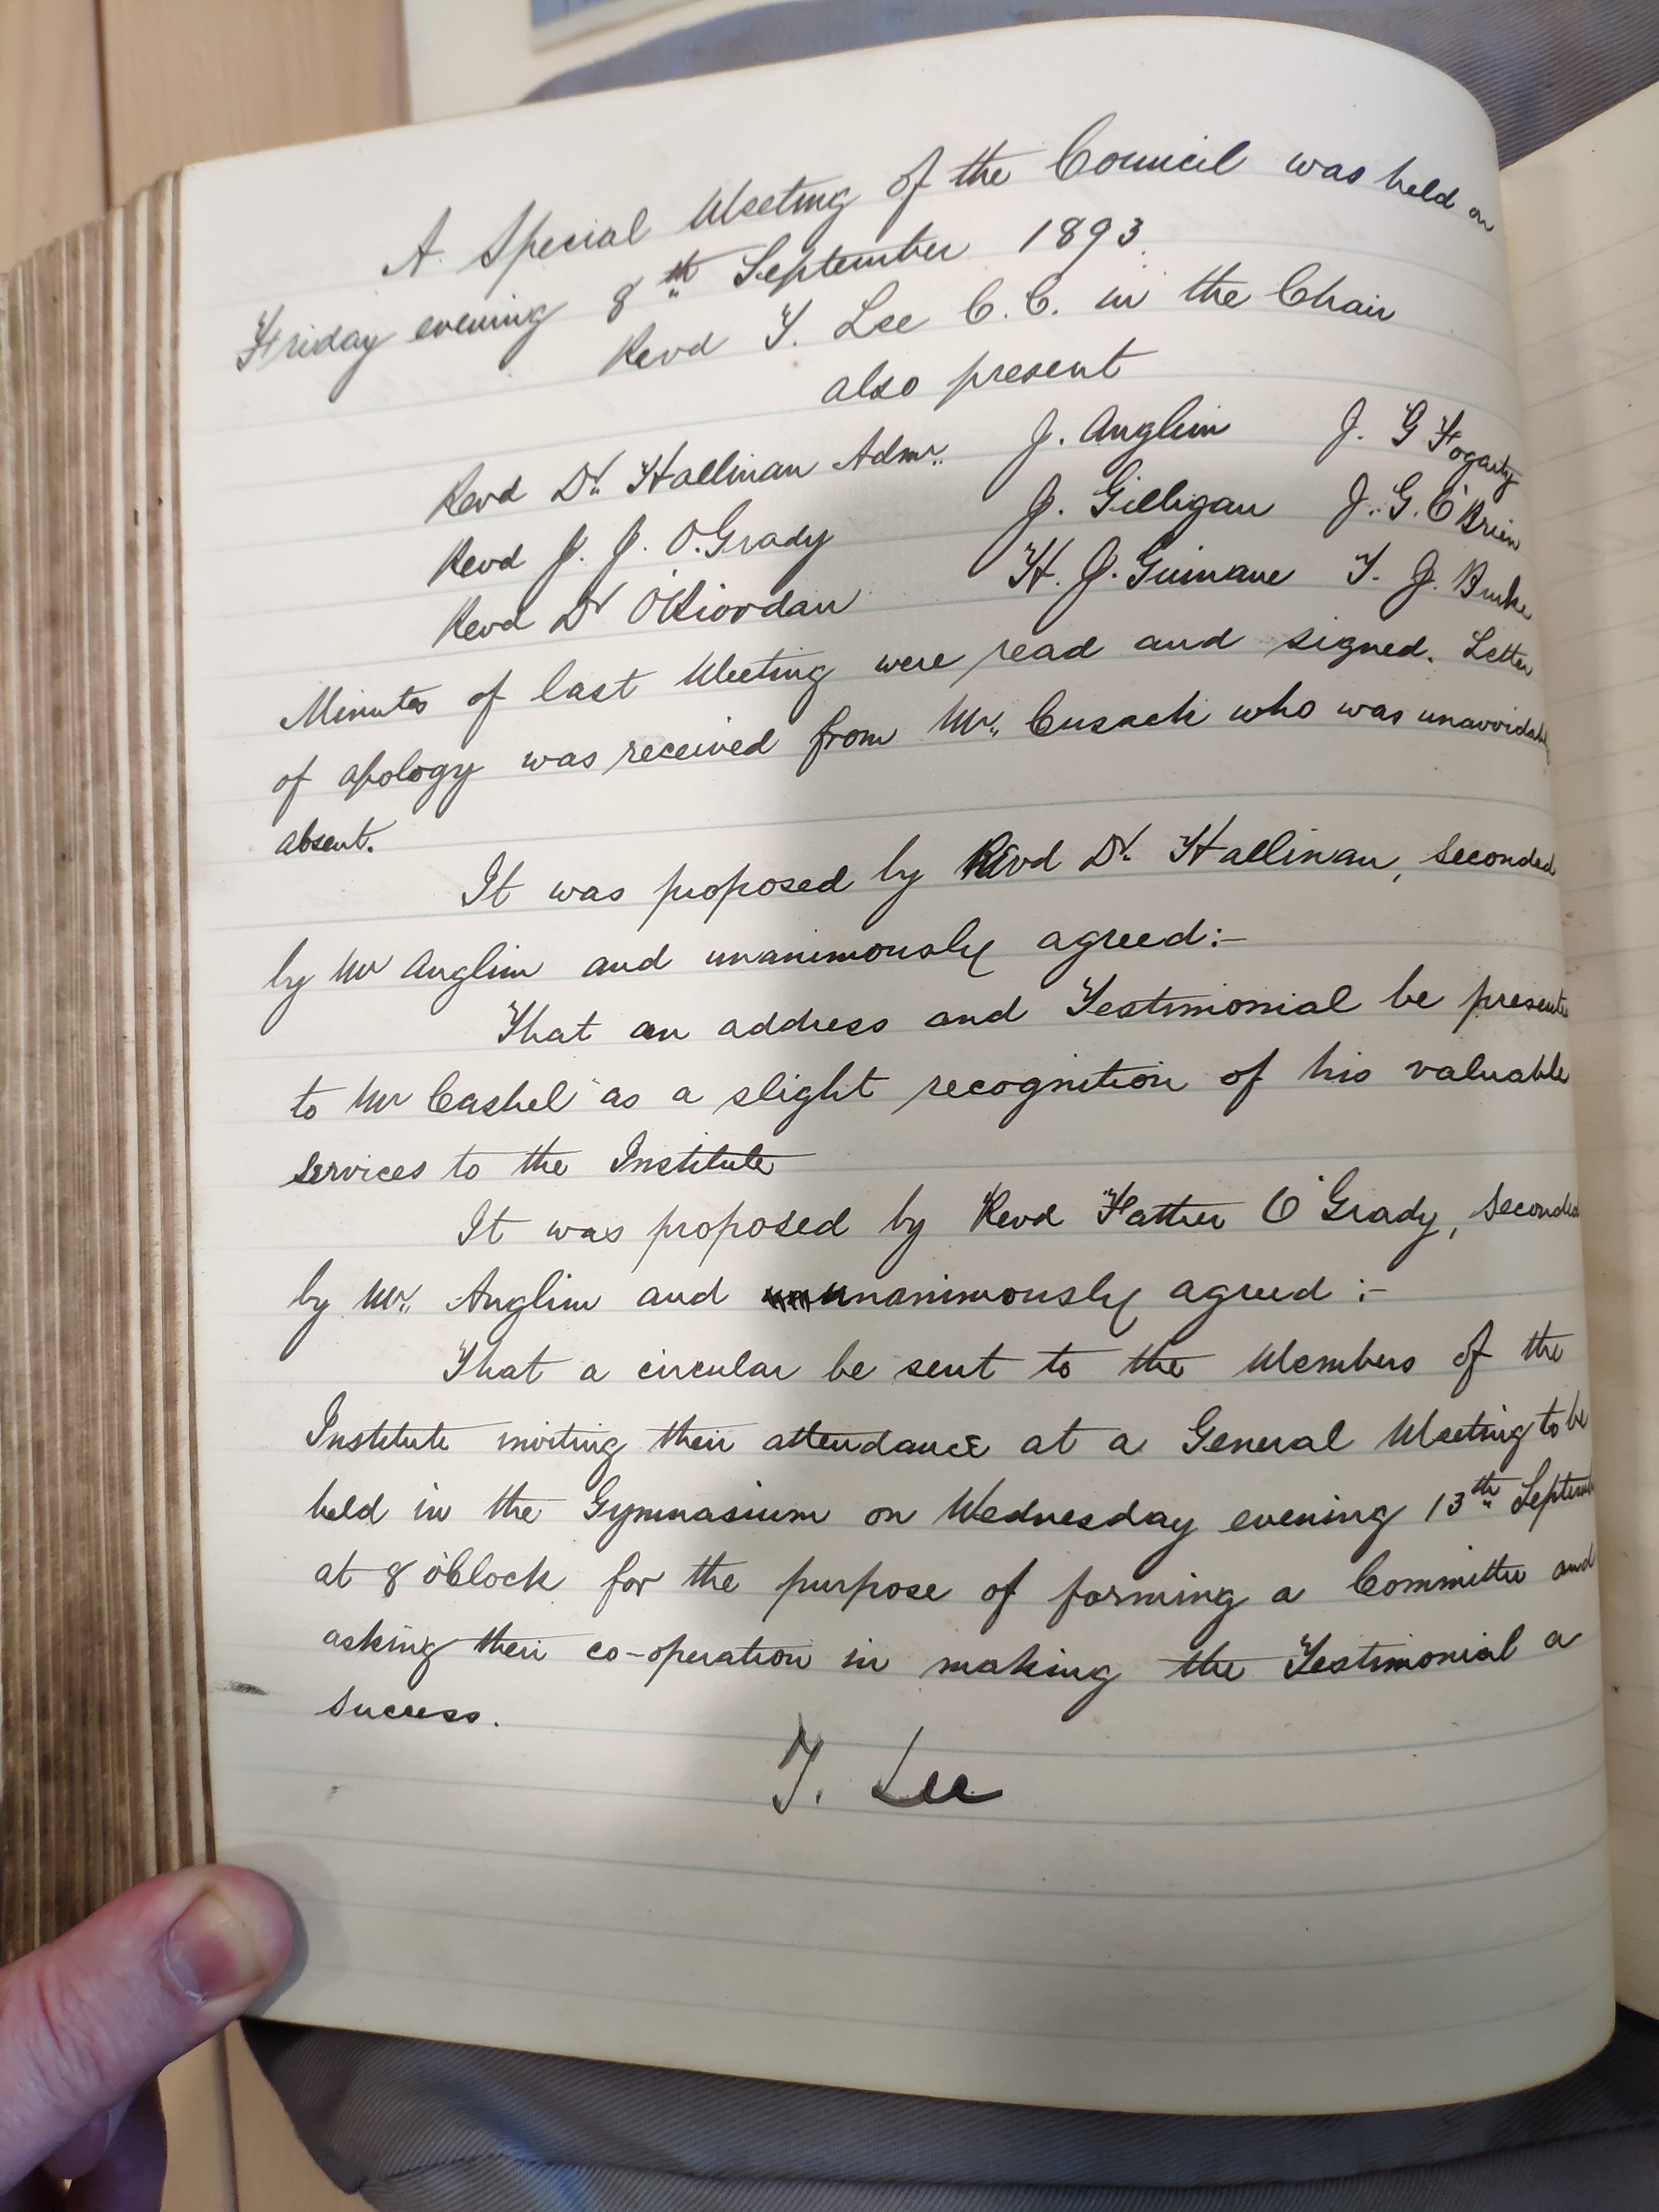 A Special Meeting of the Council was held on
Friday evening 8th September 1893.
Revd T. Lee C.C. in the Chair
also present
Revd Dr. Hallinan Admr. J. Anglim J. G Fogarty
Revd J. J. O'Grady J. Gilligan J. G. O'Brien
Revd Dr O'Riordan H. J. Guinane T. J. Burke
Minutes of last Meeting were read and signed. Letter
of apology was received from Mr. Cusack who was unavoidably
absent.
It was proposed by Revd Dr. Hallinan, seconded
by Mr Anglim and unanimously agreed:-
That an address and Testimonial be presente
to Mr Cashel as a slight recognition of his valuable
services to the Institute
It was proposed by Revd Father O'Grady, seconded
by Mr. Anglim and unanimously agreed :-
That a circular be sent to the Members of the
Institute inviting their attendance at a General Meeting to be
held in the Gymnasium on Wednesday evening 13th Septemb
at 8 o'Clock for the purpose of forming a Committee and
asking their co-operation in making the Testimonial a
success.
T. Lee